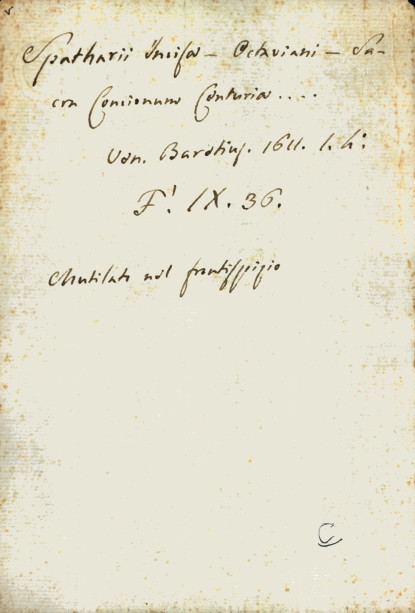 Spatharii Incisa - Octaviani - Sa-
cra Concionum Centuria ....
Ven. Baretius. 1611. l. h:
F! IX. 36.
Mutilato nel frontispizio
C